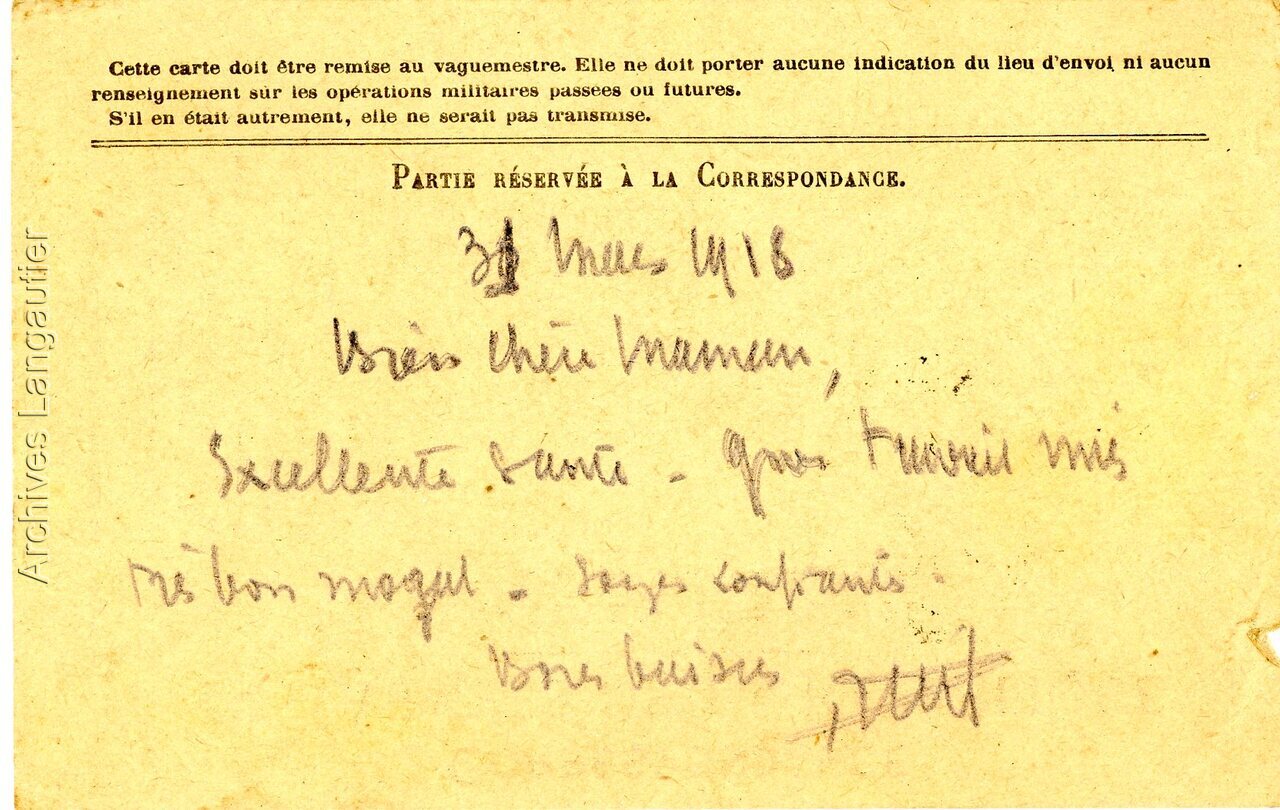 Cette carte doit être remise au vaguemestre. Elle ne doit porter aucune indication du lieu d'envoi ni aucun
renseignement sur les opérations militaires passees ou futures.
S'il en était autrement, elle ne serait pas transmise.
PARTIE RÉSERVÉE À LA CORRESPONDANCE.
31 Mars 1918
Bien chère Maman,
Excellente santé - Gros travail mis
très bon moral - Soyez confiants.
Bons baisers
Archives Langautier